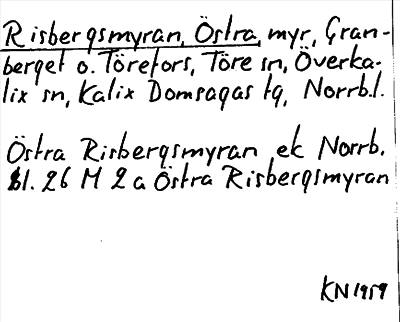 Risbergsmyran, Östra, myr, Gran-
berget o. Törefors, Töre sn, Överka-
lix sn, Kalix Domsagas tg, Norrb.l.
Östra Risbergsmyran ek Norrb.
bl. 26 M 2 a Östra Risbergsmyran
KN 1959